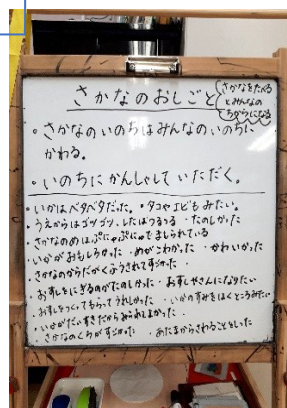 さかなのおしごと
さかなをたべる
とみんなの
ちからになる
・さかなのいのちはみんなのいのちに
かわる。
・いのちにかんしゃしていただく。
・いかはベタベタだった。・タコやエビもみたい。
・うえからはゴツゴツ、したはつるつる・たのしかった
・さかなのめはぷにゃぷにゃでまもられている
・いかがおもしろかった・めがこわかった・かわいかった
・さかなのからだがくようされてすごかった・
・おすしをにぎるのがたのしかった・おすしやさんになりたい
・おすしをつくってもらってうれしかった・いかのすみをはくところみたい
・いかがだいすきだからみられてよかった
・さかなのくちがすごかった・あたまからされることをしった